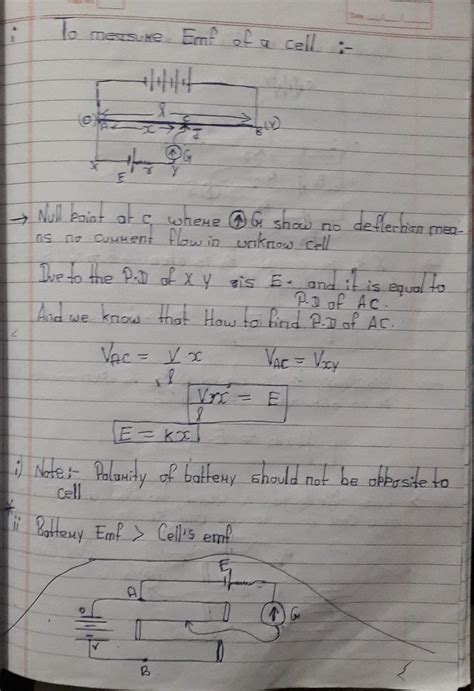 i To measure Emf of a cell :-
l
(0) A x C J B (V)
G
X E r Y
→ Null point at c where G show no deflection mea-
ns no current flow in unknow cell
Due to the P.D of X Y is E. and it is equal to
P.D of AC.
And we know that How to find P.D of AC.
VAC = V/l x VAC = VXY
Vx/l = E
E = kx
i) Note:- Polarity of battery should not be opposite to
cell
* ii Battery Emf > Cell's emf
E
A
G
B